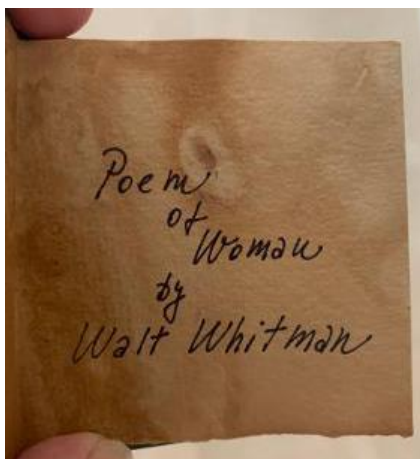 Poem
of
Woman
by
Walt Whitman